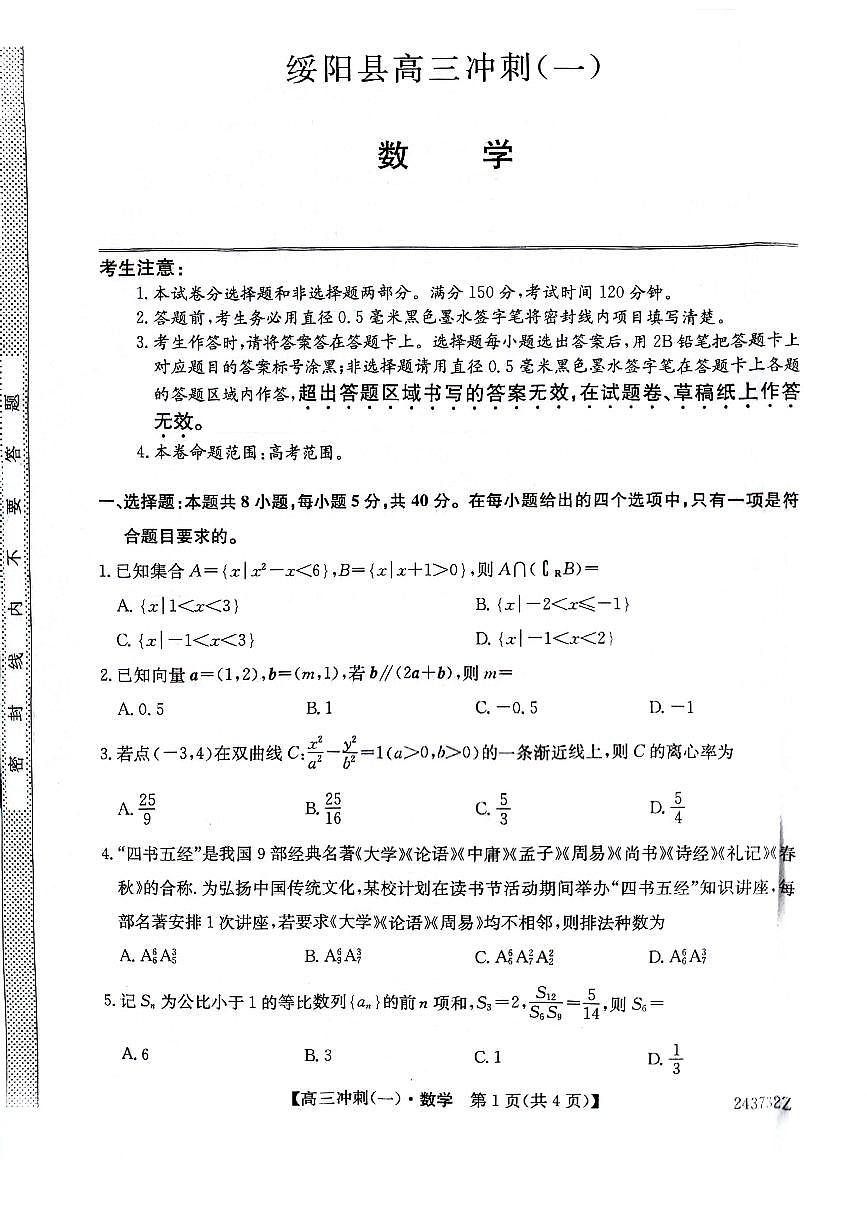 绥阳县高三冲刺(一)
数 学
考生注意:
1. 本试卷分选择题和非选择题两部分。满分 150 分,考试时间 120 分钟。
2. 答题前,考生务必用直径 0.5 毫米黑色墨水签字笔将密封线内项目填写清楚。
3. 考生作答时,请将答案答在答题卡上。选择题每小题选出答案后,用 2B 铅笔把答题卡上
对应题目的答案标号涂黑;非选择题请用直径 0.5 毫米黑色墨水签字笔在答题卡上各题
的答题区域内作答,超出答题区域书写的答案无效,在试题卷、草稿纸上作答
无效。
4. 本卷命题范围:高考范围。
一、选择题:本题共 8 小题,每小题 5 分,共 40 分。在每小题给出的四个选项中,只有一项是符
合题目要求的。
1. 已知集合 A={x|x²-x<6},B={x|x+1>0},则 A∩(∁RB)=
A. {x|1<x<3} B. {x|-2<x≤-1}
C. {x|-1<x<3} D. {x|-1<x<2}
2. 已知向量 a=(1,2),b=(m,1),若 b∥(2a+b),则 m=
A. 0.5 B. 1 C. -0.5 D. -1
3. 若点(-3,4)在双曲线 C:x²/a²-y²/b²=1(a>0,b>0)的一条渐近线上,则 C 的离心率为
A. 25/9 B. 25/16 C. 5/3 D. 5/4
4. “四书五经”是我国 9 部经典名著《大学》《论语》《中庸》《孟子》《周易》《尚书》《诗经》《礼记》《春
秋》的合称. 为弘扬中国传统文化,某校计划在读书节活动期间举办“四书五经”知识讲座,每
部名著安排 1 次讲座,若要求《大学》《论语》《周易》均不相邻,则排法种数为
A. A₆⁶A₅³ B. A₉⁶A₇³ C. A₆⁶A₇²A₂² D. A₆⁶A₇³
5. 记 Sₙ 为公比小于 1 的等比数列{aₙ}的前 n 项和,S₃=2,S₁₂/S₆S₉=5/14,则 S₆=
A. 6 B. 3 C. 1 D. 1/3
【高三冲刺(一)·数学 第 1 页(共 4 页)】
243732Z
密 封 线 内 不 要 答 题